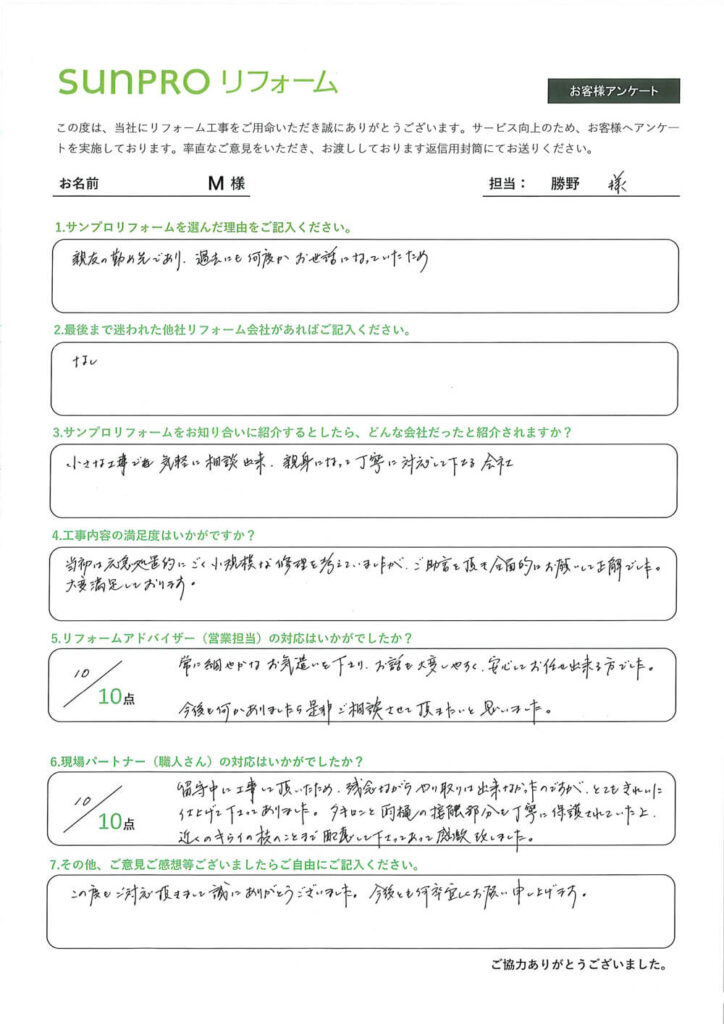 SUNPRO リフォーム
お客様アンケート
この度は、当社にリフォーム工事をご用命いただき誠にありがとうございます。サービス向上のため、お客様へアンケー
トを実施しております。率直なご意見をいただき、お渡ししております返信用封筒にてお送りください。
お名前 M 様 担当： 勝野 様
1.サンプロリフォームを選んだ理由をご記入ください。
親友の勤め先であり、過去にも何度かお世話になっていたため
2.最後まで迷われた他社リフォーム会社があればご記入ください。
なし
3.サンプロリフォームをお知り合いに紹介するとしたら、どんな会社だったと紹介されますか？
小さな工事でも気軽に相談出来、親身になって丁寧に対応して下さる会社
4.工事内容の満足度はいかがですか？
当初は応急処置的にごく小規模な修理を考えていましたが、ご助言を頂き全面的にお願いして正解でした。
大変満足しております。
5.リフォームアドバイザー（営業担当）の対応はいかがでしたか？
10/10点
常に細やかなお気遣いを下さり、お話も大変しやすく、安心してお任せ出来る方でした。
今後も何かありましたら是非ご相談させて頂きたいと思いました。
6.現場パートナー（職人さん）の対応はいかがでしたか？
10/10点
留守中に工事して頂いたため、残念ながらやり取りは出来なかったのですが、とてもきれいに
仕上げて下さってありました。タキロンと雨樋の接触部分も丁寧に保護されていた上、
近くのキウイの枝のことまで配慮して下さってあって感激致しました。
7.その他、ご意見ご感想等ございましたらご自由にご記入ください。
この度もご対応頂きまして誠にありがとうございました。今後とも何卒宜しくお願い申し上げます。
ご協力ありがとうございました。